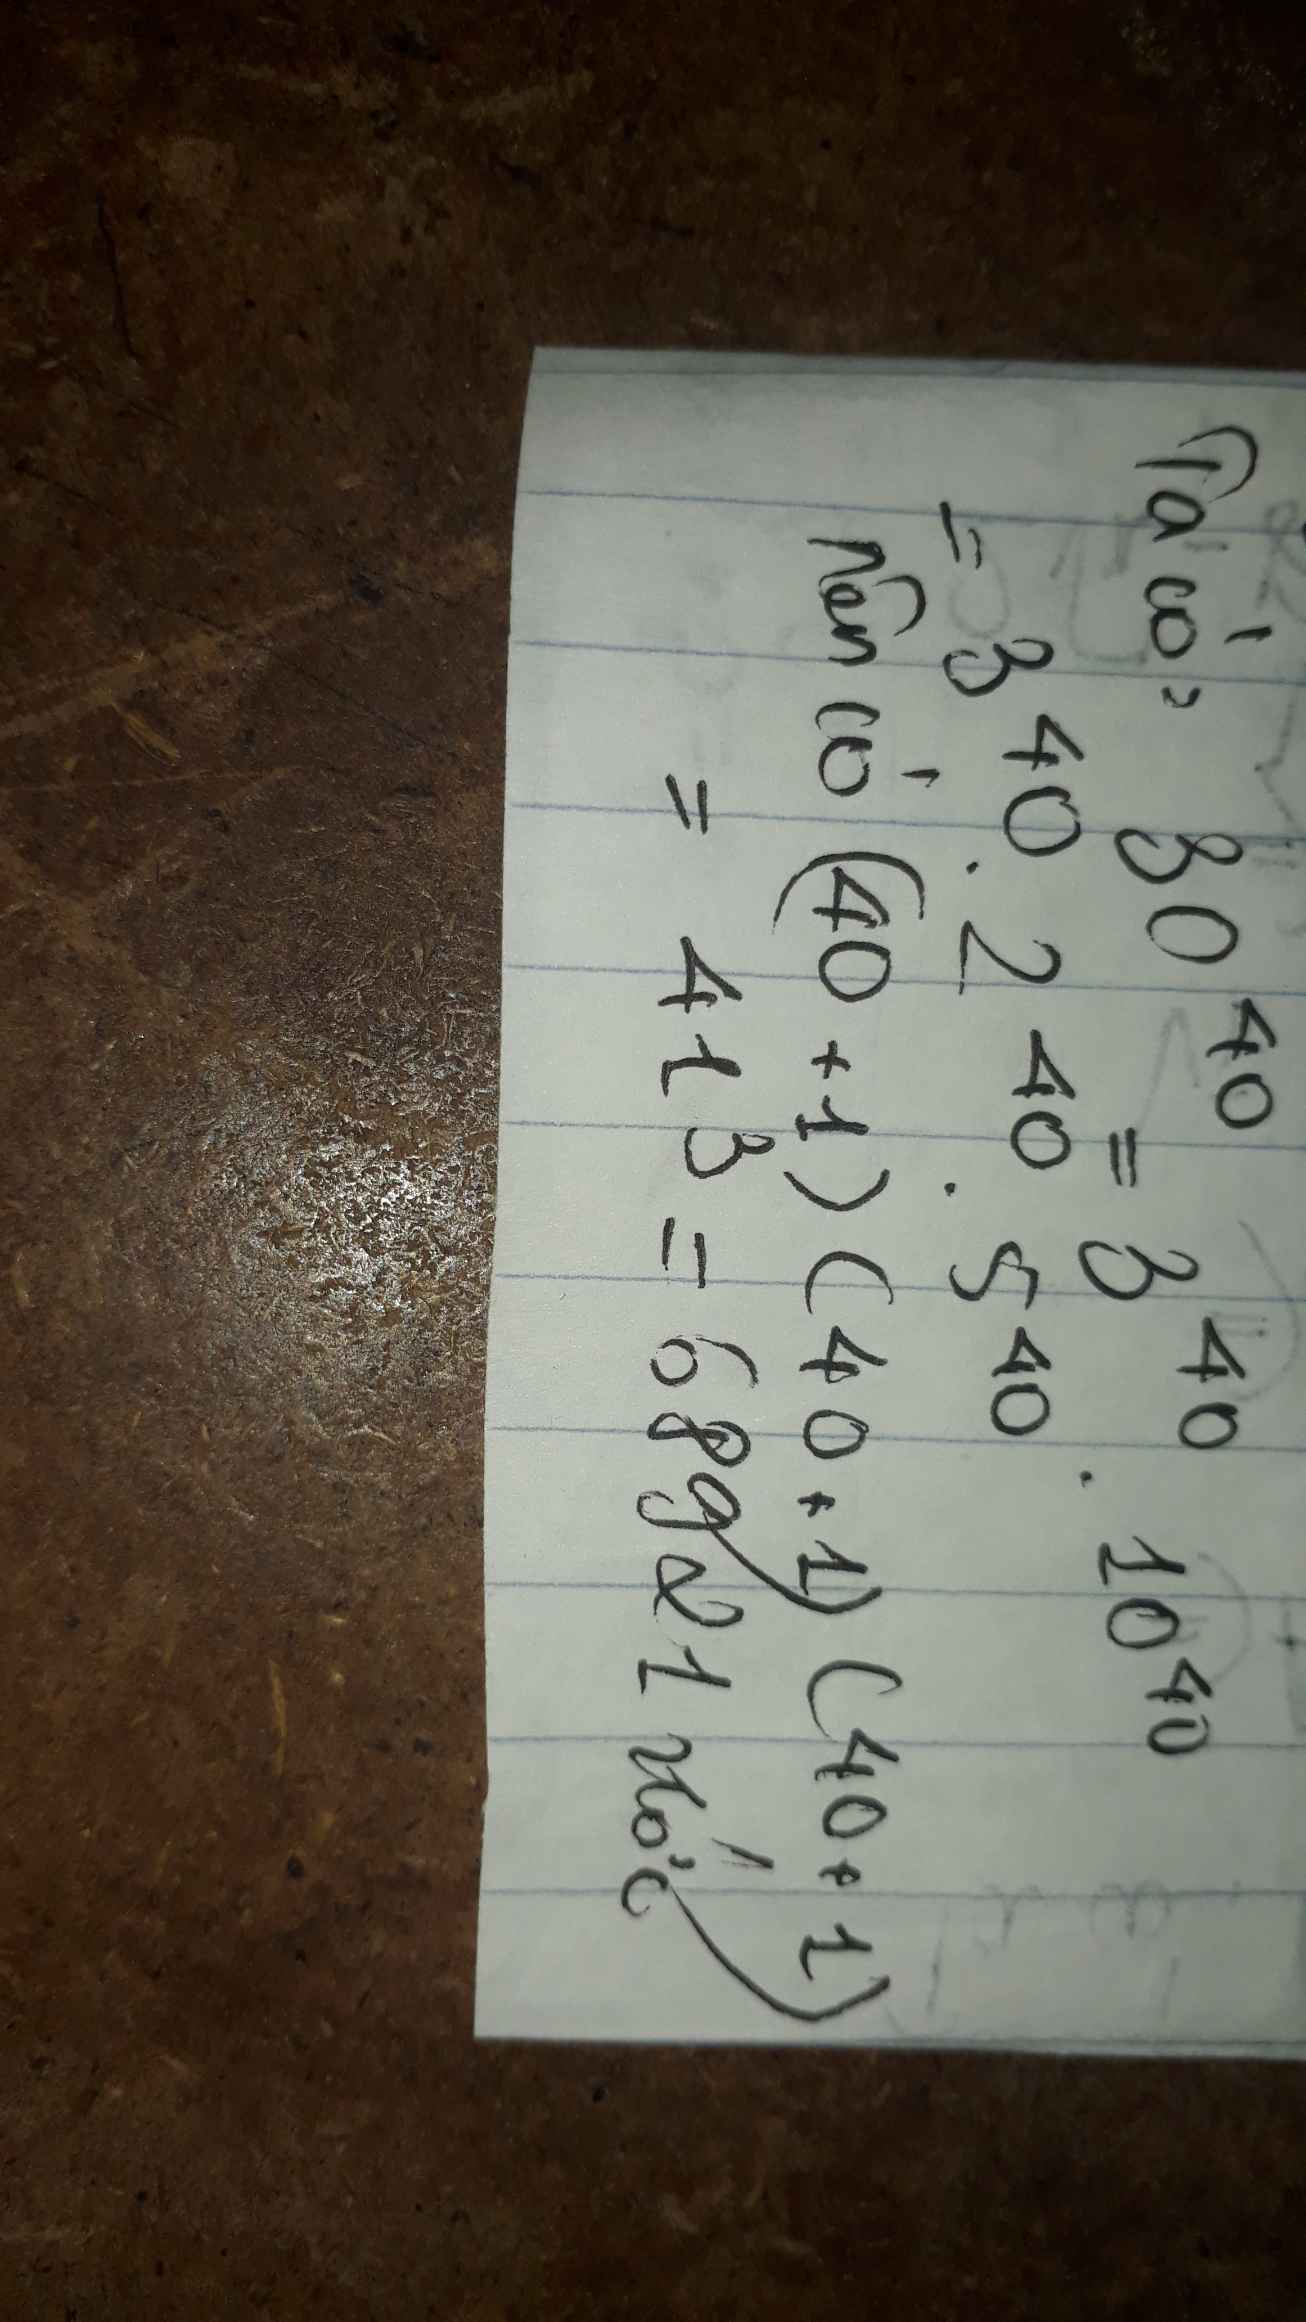 Ta có: 30⁴⁰ = 3⁴⁰ . 10⁴⁰
= 3⁴⁰ . 2⁴⁰ . 5⁴⁰
Nên có (40 + 1) (40 + 1) (40 + 1)
= 41³ = 68921 ước